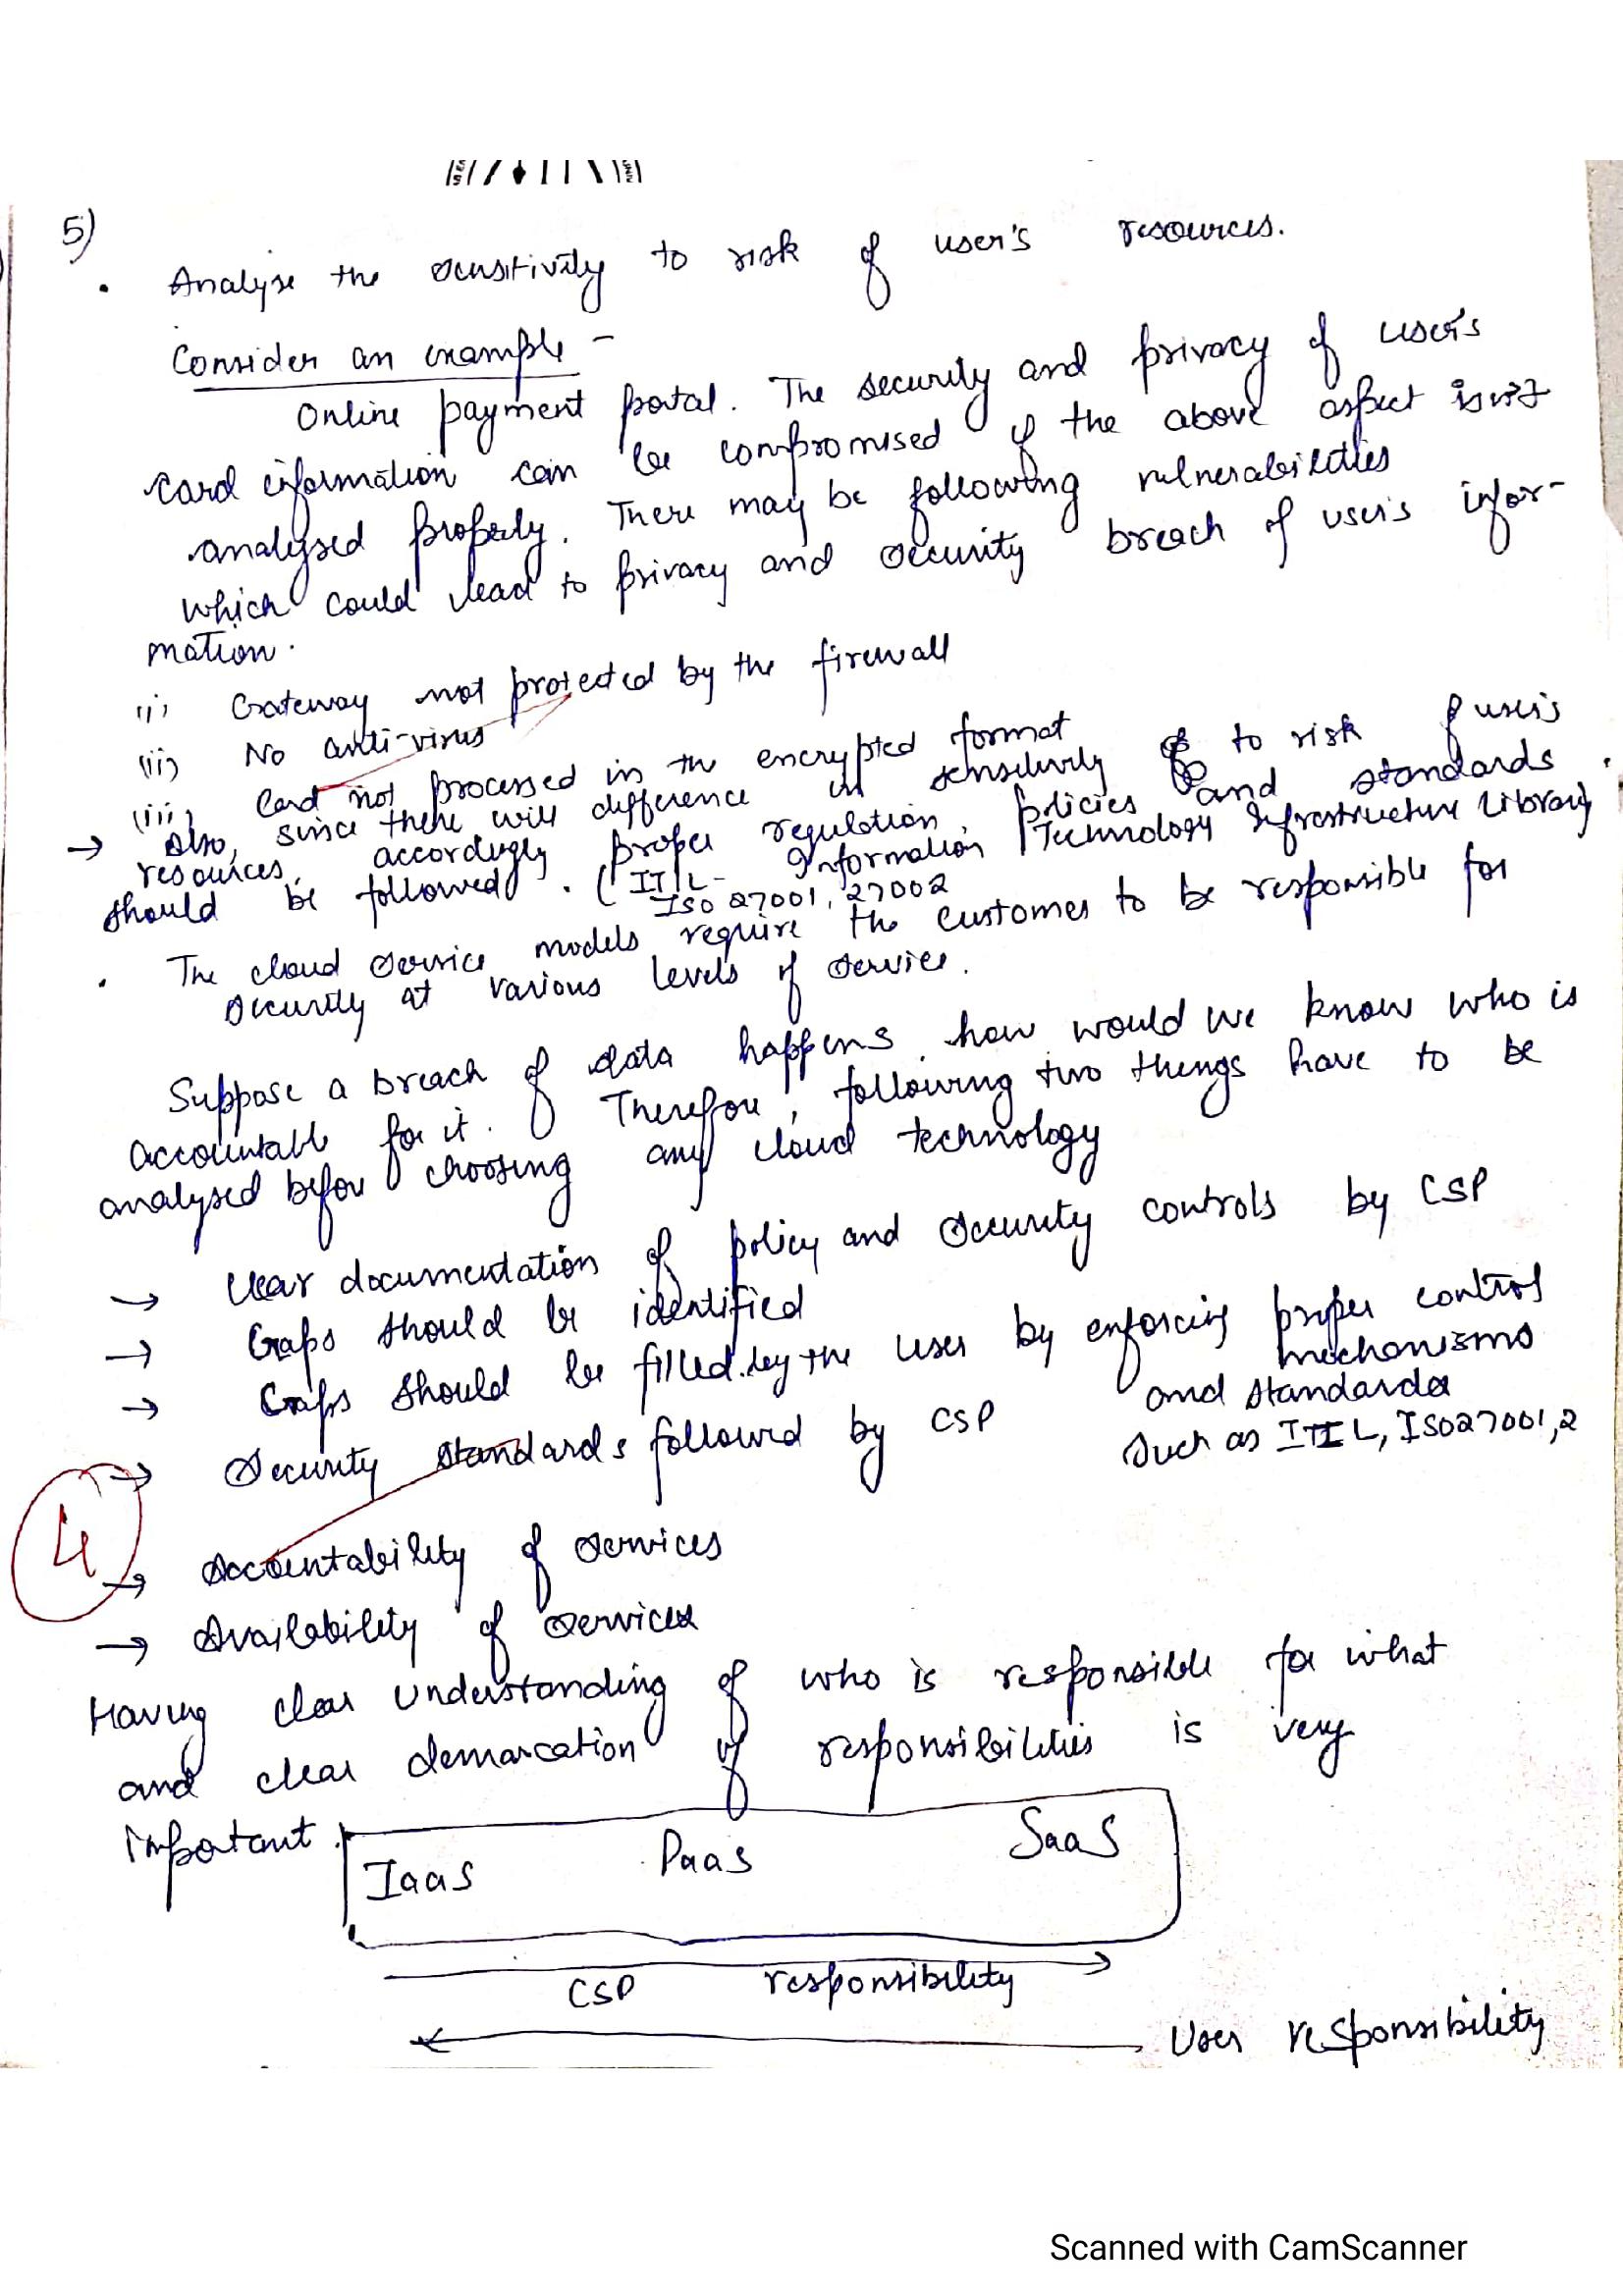 5)
• Analyse the sensitivity to risk of user's resources.
Consider an example -
Online payment portal. The security and privacy of user's
card information can be compromised if the above aspect isn't
analysed properly. There may be following vulnerabilities
which could lead to privacy and security breach of user's infor-
mation.
(i) Gateway not protected by the firewall
(ii) No anti-virus
(iii) Card not processed in the encrypted format
→ Also, since there will difference in sensitivity to risk of user's
resources, accordingly proper regulation, policies and standards
should be followed. (ITIL- Information Technology Infrastructure Library
ISO 27001, 27002
• The cloud service models require the customer to be responsible for
security at various levels of service.
Suppose a breach of data happens, how would we know who is
accountable for it. Therefore, following two things have to be
analysed before choosing any cloud technology
→ Clear documentation of policy and security controls by CSP
→ Gaps should be identified
→ Gaps should be filled by the user by enforcing proper control
mechanisms
and standards
such as ITIL, ISO27001,2
→ Security standards followed by CSP
4
→ Accountability of services
→ Availability of services
Having clear understanding of who is responsible for what
and clear demarcation of responsibilities is very
important.
IaaS PaaS SaaS
CSP responsibility
User responsibility
Scanned with CamScanner